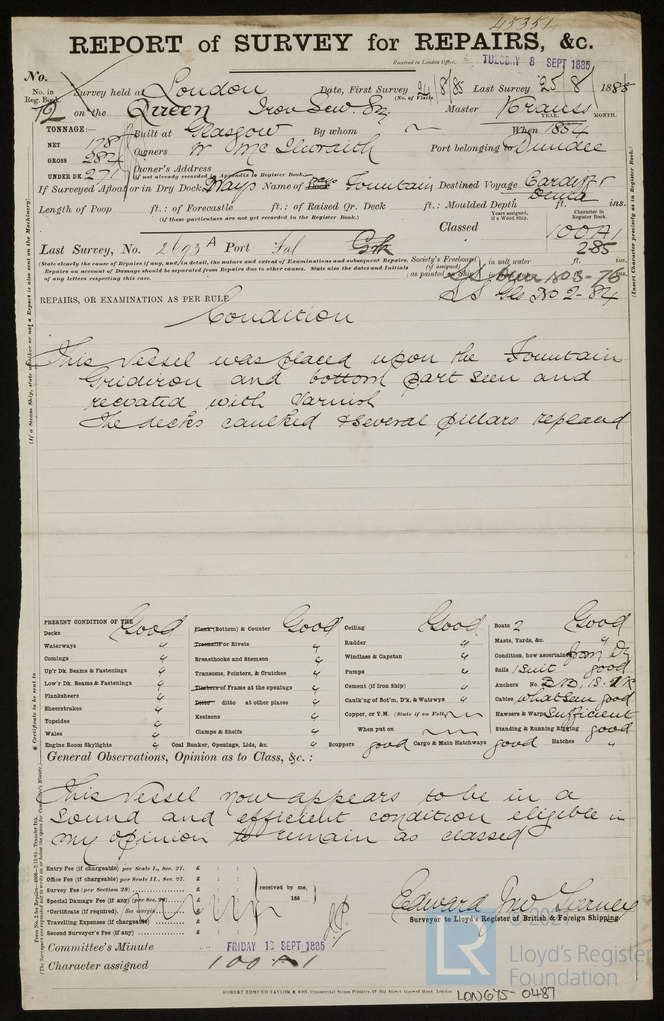 45351
REPORT of SURVEY for REPAIRS, &c.
Received in London Office, TUESDAY 8 SEPT 1885
No.
No. in Reg. Book. Survey held at London Date, First Survey 24/8/85 Last Survey 25/8/1885
(No. of Visits)
72 on the Queen Iron Scw. Sr. Master Kraues
YEAR. MONTH.
TONNAGE:— Built at Glasgow By whom When 1854
NET 178
GROSS 284 Owners W McIlwraith Port belonging to Dundee
UNDER DK. 271 Owner's Address
(if not already recorded in Appendix to Register Book.)
If Surveyed Afloat or in Dry Dock Ways Name of Fountain Destined Voyage Cardiff &
Length of Poop ft.: of Forecastle ft.: of Raised Qr. Deck ft.: Moulded Depth ft. ins.
(if these particulars are not yet recorded in the Register Book.)
Years assigned, if a Wood Ship. Character in Register Book.
Classed 100A1
Last Survey, No. 2693A Port Fal Crk 2.85
(State clearly the cause of Repairs if any, and, in detail, the nature and extent of Examinations and subsequent Repairs.
Repairs on account of Damage should be separated from Repairs due to other causes. State also the dates and Initials
of any letters respecting this case.
Society's Freeboard (if assigned) as painted on Ship in salt water ft. ins.
SS Gls No 2-84
REPAIRS, OR EXAMINATION AS PER RULE
Condition
This Vessel was placed upon the Fountain
Gridiron and bottom part seen and
recoated with Varnish
The decks caulked & several pillars replaced
PRESENT CONDITION OF THE
Decks Good Plank (Bottom) & Counter Good Ceiling Good Boats 2 Good
Waterways " Treenails or Rivets " Rudder " Masts, Yards, &c. "
Comings " Breasthooks and Stemson " Windlass & Capstan " Condition, how ascertained from Dk
Up'r Dk. Beams & Fastenings " Transoms, Pointers, & Crutches " Pumps " Sails 1 Suit good
Low'r Dk. Beams & Fastenings " Timbers or Frame at the openings " Cement (if Iron Ship) " Anchors No.
Planksheers " Ditto ditto at other places " Caulk'ng of Bot'm, D'k, & Watrwys " Cables what seen good
Sheerstrakes " Keelsons " Copper, or Y.M. (State if on Felt) Hawsers & Warps Sufficient
Topsides " Clamps & Shelfs " When put on Standing & Running Rigging good
Wales "
Engine Room Skylights " Coal Bunker, Openings, Lids, &c. " Scuppers good Cargo & Main Hatchways good Hatches "
General Observations, Opinion as to Class, &c. :
This Vessel now appears to be in a
sound and efficient condition eligible in
my opinion to remain as classed
Entry Fee (if chargeable) per Scale I., Sec. 27. £ : :
Office Fee (if chargeable) per Scale II., Sec. 27. £ : :
Survey Fee (per Section 28) £ : :
Special Damage Fee (if any) (per Sec. 28) £ : :
*Certificate (if required). See margin. £ : :
Travelling Expenses (if chargeable) £ : :
Second Surveyor's Fee (if any) £ : :
received by me,
188
Edward Jno Gurney
Surveyor to Lloyd's Register of British & Foreign Shipping
Committee's Minute FRIDAY 18 SEPT 1885
Character assigned 100 A 1
ROBERT EDMUND TAYLOR & SON, Commercial Steam Printers, 19 Old Street, Goswell Road, London
LON675-0487
LR
Lloyd's Register
Foundation
* Certificate to be sent to
(Insert Character precisely as in Register Book.)